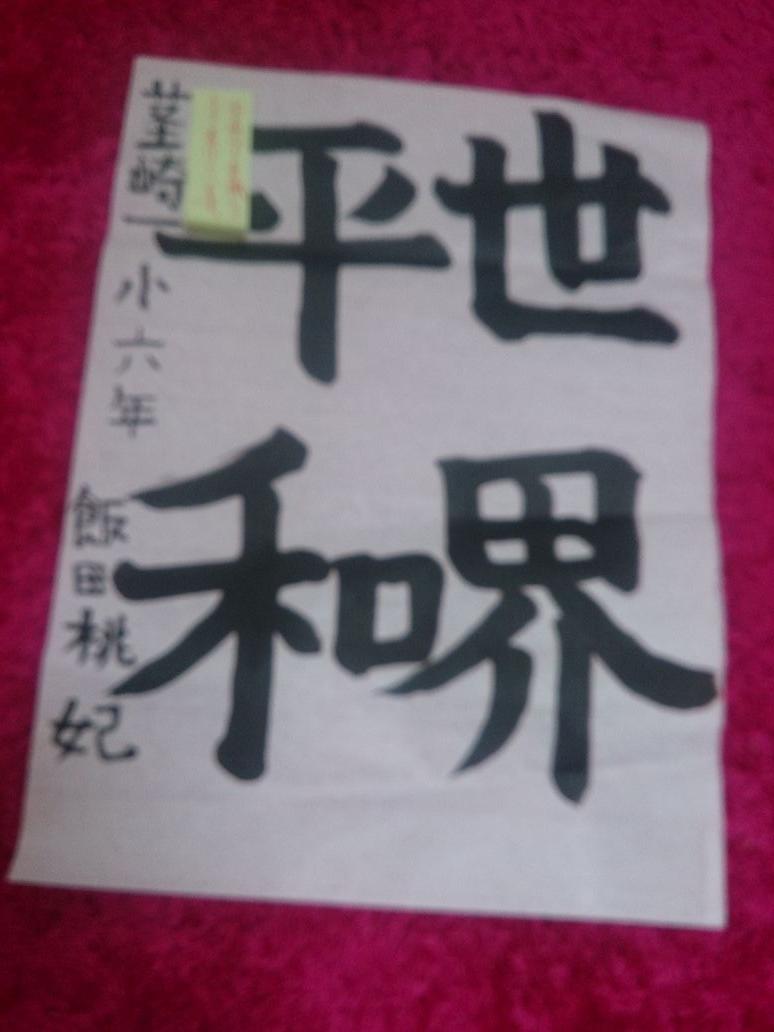 世界
平和
茎崎一小六年 飯田桃妃